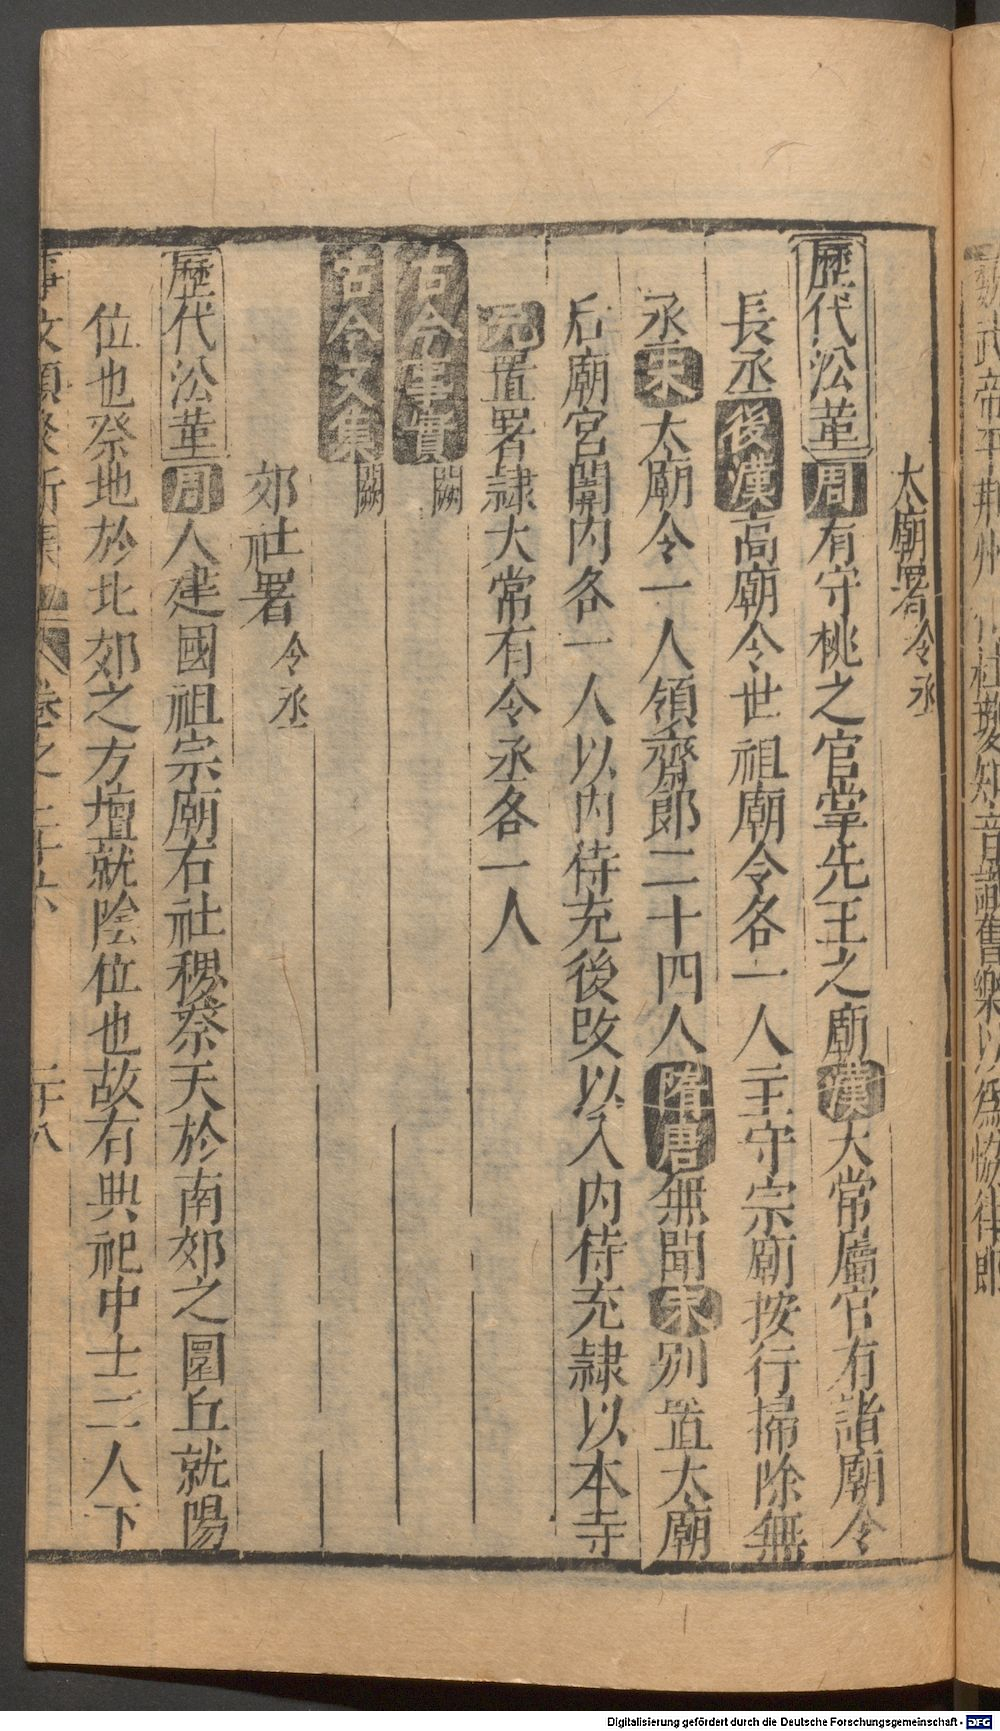 太廟署令丞
歷代㳂革周有守桃之官掌先王之廟漢大常屬官有諸廟令
長丞後漢高廟令世祖廟令各一人主守宗廟按行掃除無
丞宋太廟令一人領齋郎二十四人隋唐無聞宋別置太廟
后廟宮闈內各一人以內侍充後改以入內侍充隷以本寺
元置署隷大常有令丞各一人
古今事實闕
古今文集闕
郊社署令丞
歷代㳂革周人建國祖宗廟右社稷祭天於南郊之圜丘就陽
位也祭地於北郊之方壇就陰位也故有典祀中士二人下
事文類聚新集卷之二十六 二十八
魏武帝平荊州 杜夔知音識舊樂以爲恊律郎
Digitalisierung gefördert durch die Deutsche Forschungsgemeinschaft - DFG